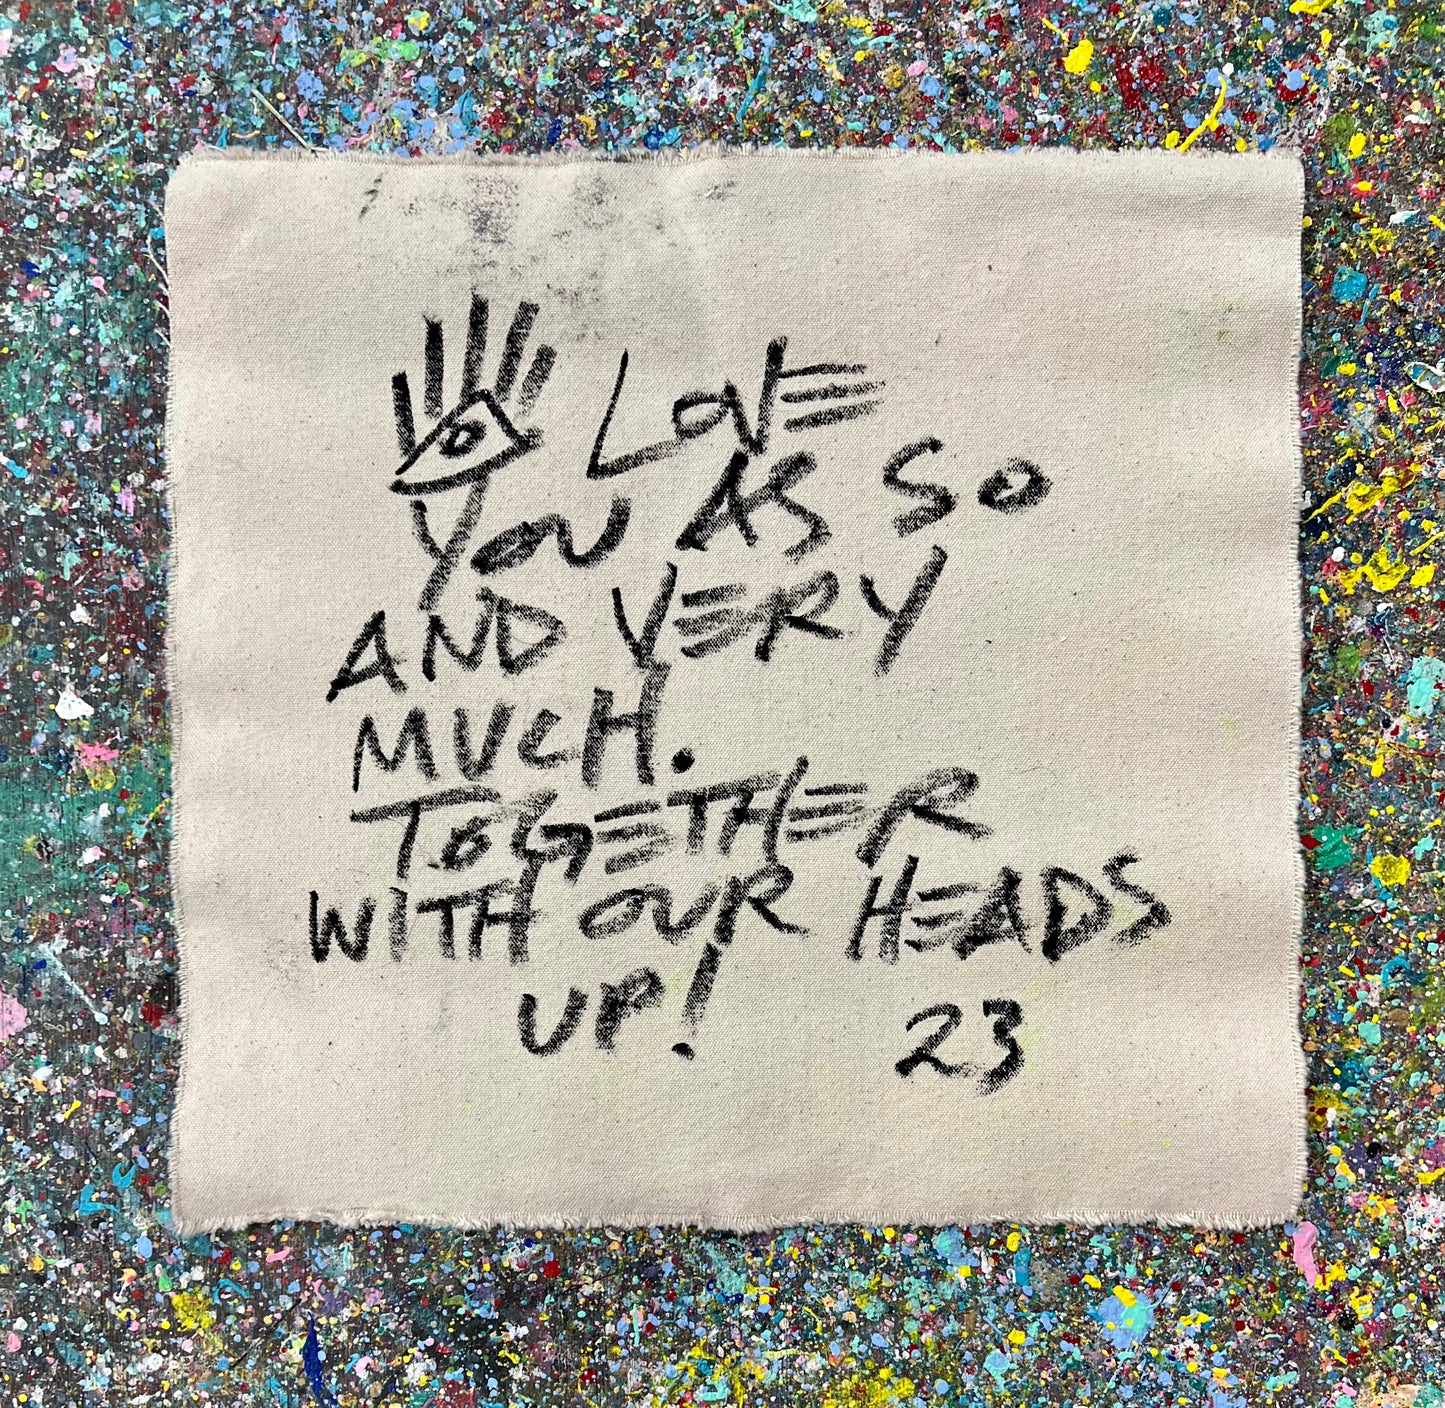 LOVE
YOU AS SO
AND VERY
MUCH.
TOGETHER
WITH OUR HEADS
UP! 23